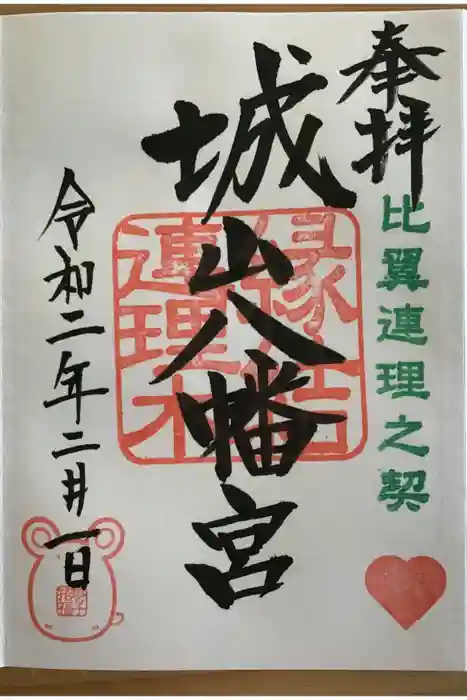 奉拝
比翼連理之契
城山八幡宮
縁結
連理木
令和二年二月一日